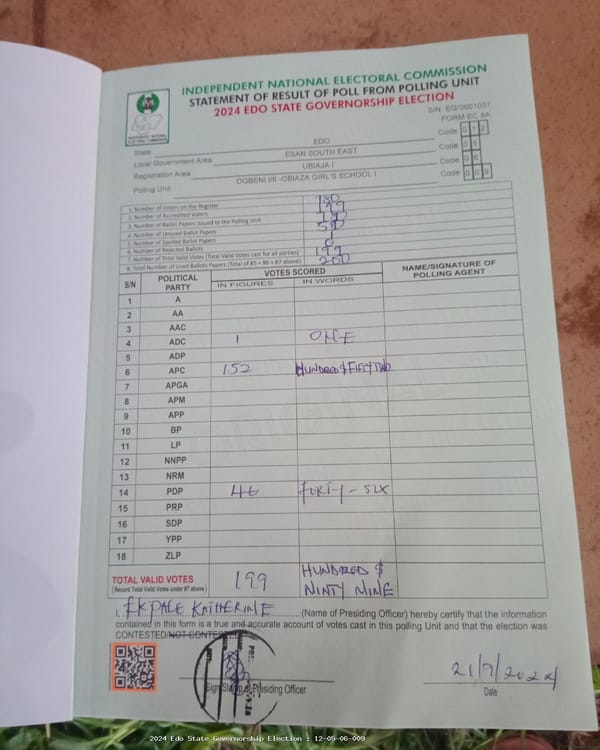 INDEPENDENT NATIONAL ELECTORAL COMMISSION
STATEMENT OF RESULT OF POLL FROM POLLING UNIT
2024 EDO STATE GOVERNORSHIP ELECTION
S/N: EG/0001057
FORM EC 8A
State EDO Code 0 1 2
Local Government Area ESAN SOUTH EAST Code 0 5
Registration Area UBIAJA I Code 0 6
Polling Unit OGBENI I/II -OBIAZA GIRL'S SCHOOL I Code 0 0 9
1. Number of Voters on the Register
2. Number of Accredited Voters
3. Number of Ballot Papers Issued to the Polling Unit
4. Number of Unused Ballot Papers
5. Number of Spoiled Ballot Papers 1
6. Number of Rejected Ballots 0
7. Number of Total Valid Votes (Total Valid Votes cast for all parties) 199
8. Total Number of Used Ballots Papers (Total of #5 + #6 + #7 above) 200
S/N POLITICAL PARTY VOTES SCORED NAME/SIGNATURE OF POLLING AGENT
IN FIGURES IN WORDS
1 A
2 AA
3 AAC
4 ADC 1 ONE
5 ADP
6 APC 152 HUNDRED $ FIFTY TWO
7 APGA
8 APM
9 APP
10 BP
11 LP
12 NNPP
13 NRM
14 PDP 46 FORTY - SIX
15 PRP
16 SDP
17 YPP
18 ZLP
TOTAL VALID VOTES 199 HUNDRED $
(Record Total Valid Votes under #7 above) NINTY NINE
I, EKPALE KATHERINE (Name of Presiding Officer) hereby certify that the information
contained in this form is a true and accurate account of votes cast in this polling Unit and that the election was
CONTESTED/NOT CONTESTED
Sign/Stamp of Presiding Officer
21/9/2024
Date
2024 Edo State Governorship Election : 12-05-06-009